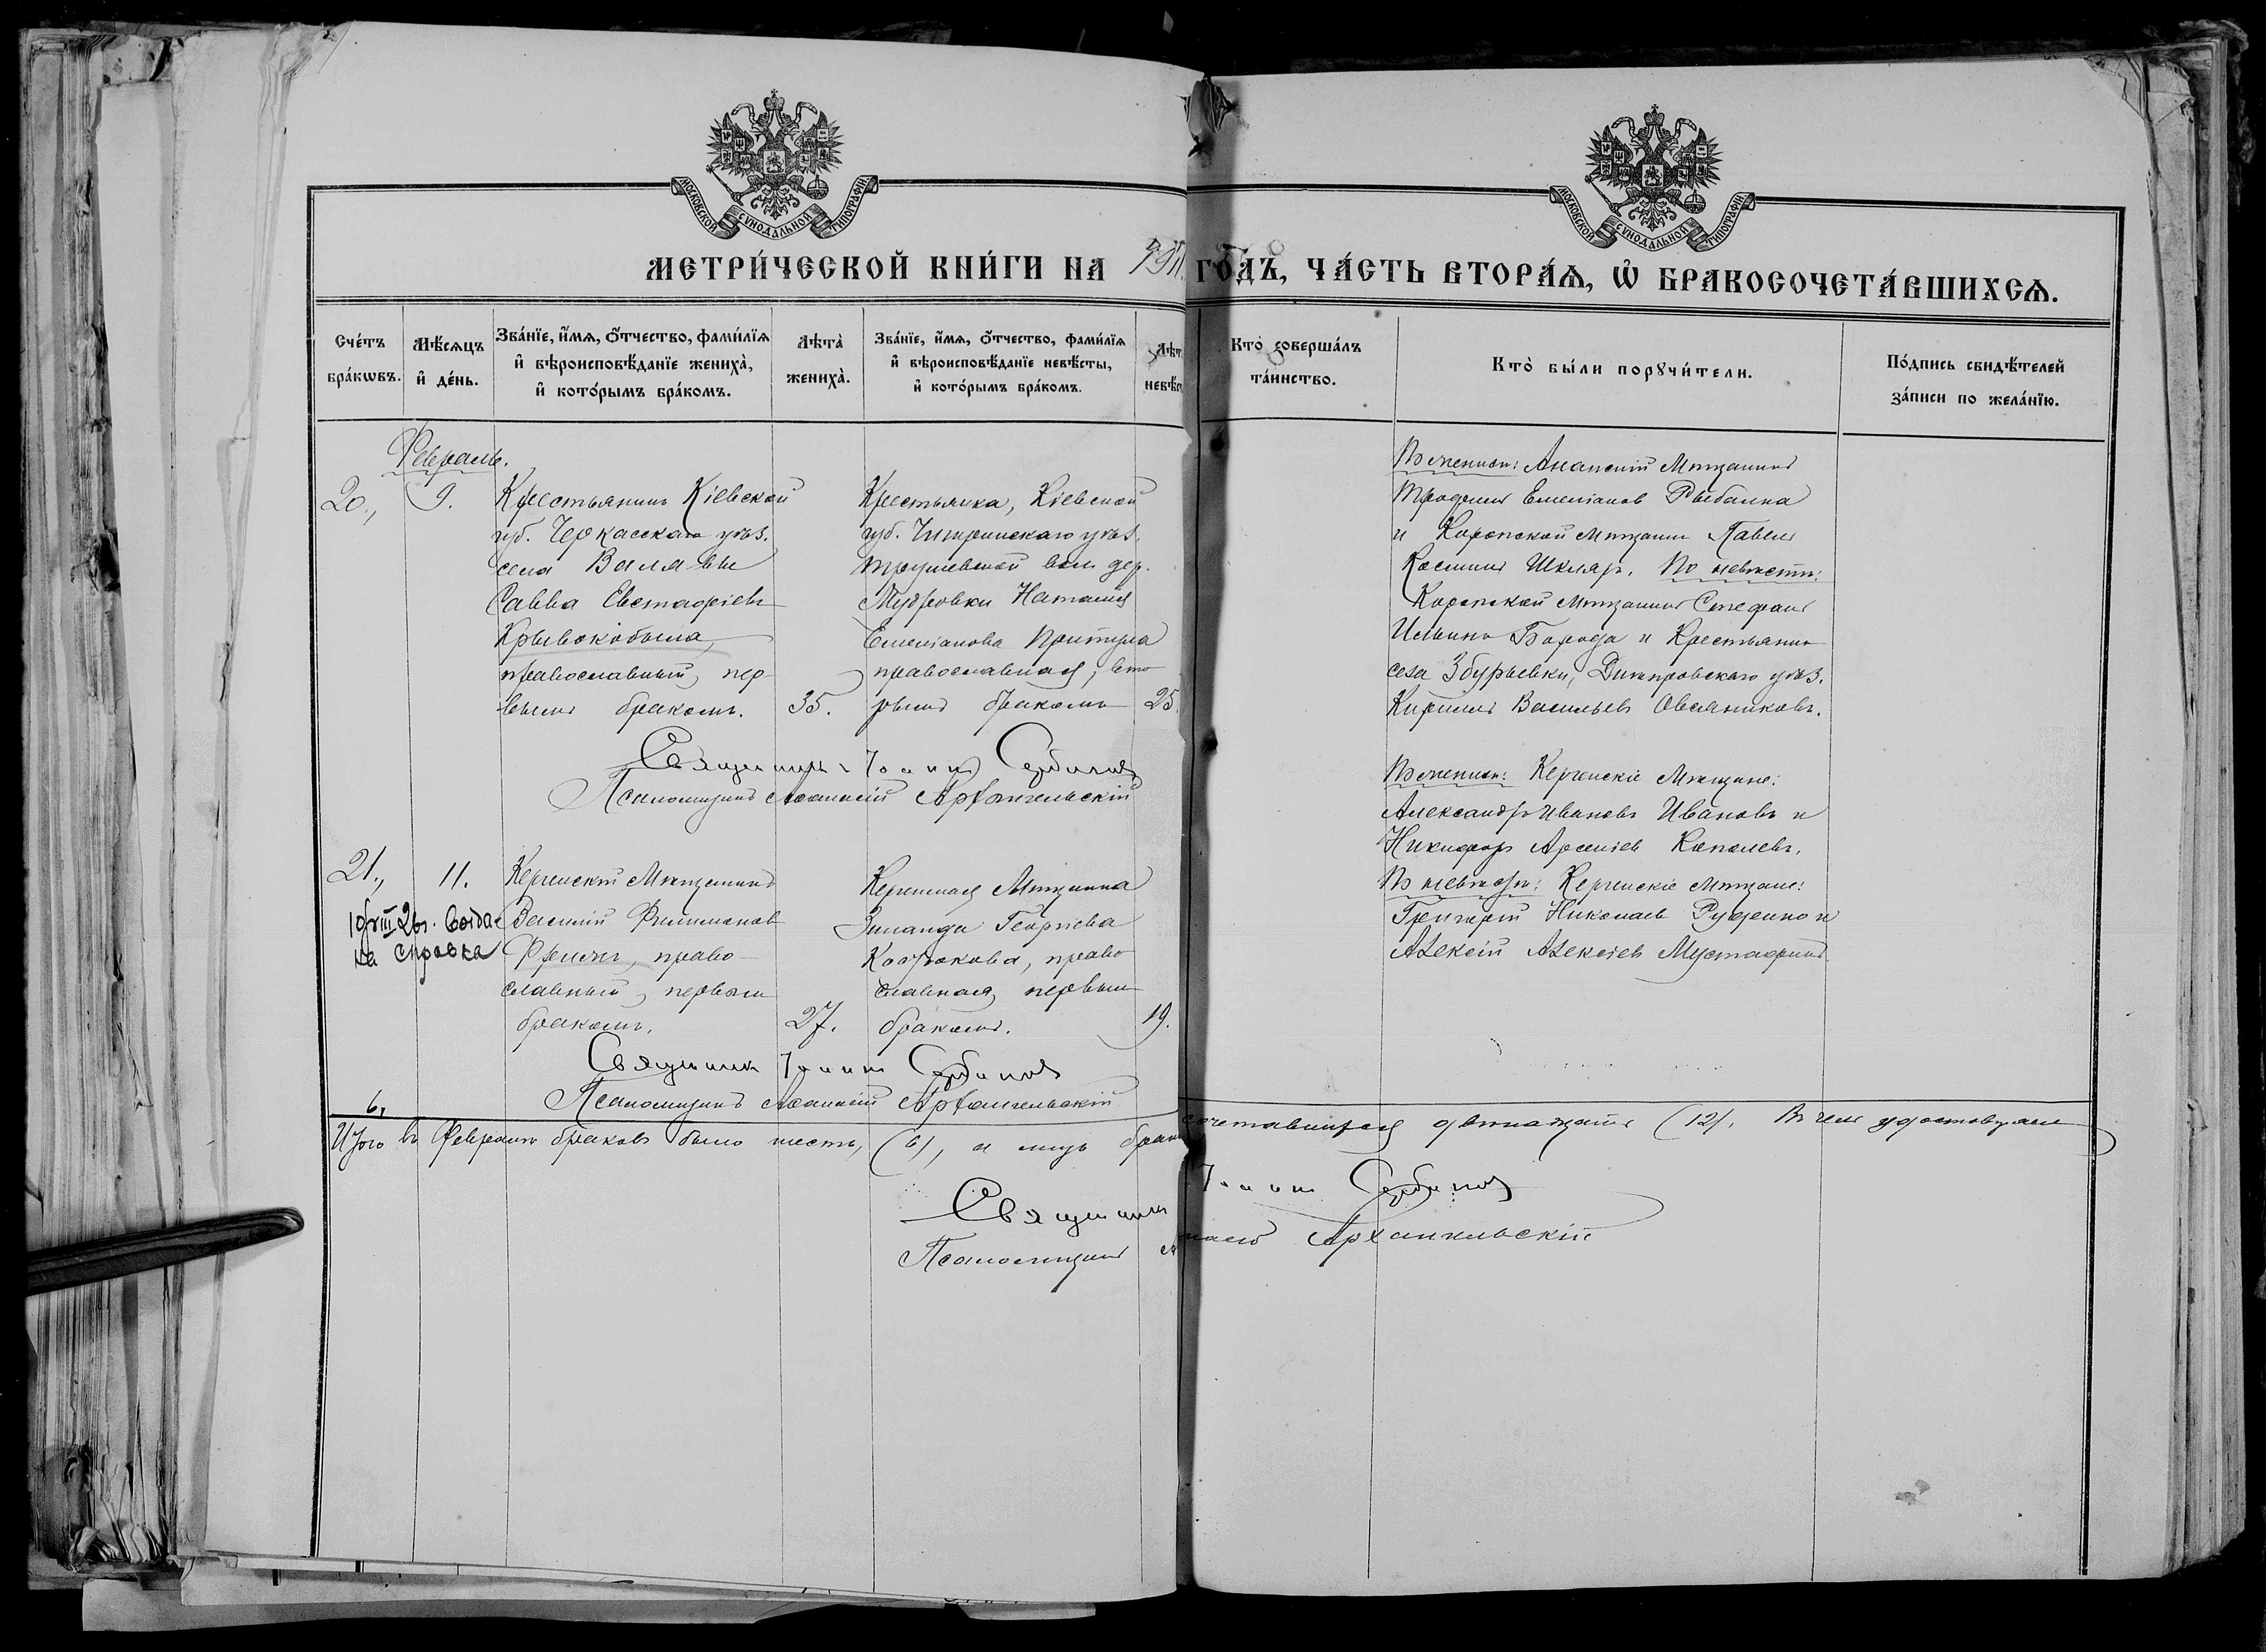 МОСКОВСКОЙ СѴНОДАЛЬНОЙ ТИПОГРАФІИ
МОСКОВСКОЙ СѴНОДАЛЬНОЙ ТИПОГРАФІИ
МЕТРИ́ЧЕСКОЙ КНИ́ГИ НА ГО́ДЪ, ЧА́СТЬ ВТОРА́Ѧ, Ѡ҆ БРАКОСОЧЕТА́ВШИХСѦ.
Сче́тъ бра́кѡвъ.
Мѣ́сяцъ и҆ де́нь.
Зва́нїе, и҆́мѧ, ѻ҆́тчество, фами́лїѧ
и҆ вѣроисповѣ́данїе жениха̀,
и҆ кото́рымъ бра́комъ.
Лѣта̀ жениха̀.
Зва́нїе, и҆́мѧ, ѻ҆́тчество, фами́лїѧ
и҆ вѣроисповѣ́данїе невѣ́сты,
и҆ кото́рымъ бра́комъ.
Лѣт
невѣс
Кто̀ соверша́лъ
та́инство.
Кто̀ бы́ли порꙋчи́тели.
По́дпись свидѣ́телей
за́писи по жела́нїю.
Февраль.
20., 9.
Крестьянинъ Кіевской
губ. Черкасскаго уѣз.
села
Савва Евстафіевъ
Кривокобыла,
православный, пер-
вымъ бракомъ. 35.
Крестьянка, Кіевской
губ. Чигринскаго уѣз.
вол. дер.
Мудровки Наталія
Емеліанова Притула
православная, вто-
рымъ бракомъ 25.
По женихѣ: Ананскій Мѣщанинъ
Трофимъ Емеліановъ Рыбалка
и Коропской мѣщанинъ Павелъ
Косминъ Шкляръ. По невѣстѣ:
Коропской мѣщанинъ Стефанъ
Ильинъ Борода и Крестьянинъ
села Збурьевки, Днѣпровскаго уѣз.
Кириллъ Васильевъ Овсяниковъ.
Священникъ Іоаннъ Сербиновъ
Псаломщикъ Афанасій Архангельскій
21., 11.
Керченскій Мѣщанинъ
Василій Филимоновъ
православный, первымъ
бракомъ. 27.
2 выда-
на справка
Керченская Мѣщанка
Зинаида Георгіева
Костюкова, право-
славная, первымъ
бракомъ. 19.
По женихѣ: Керченскіе Мѣщане:
Александръ Ивановъ Ивановъ и
Никифоръ Арсеніевъ Коналевъ.
По невѣстѣ: Керченскіе мѣщане:
Григорій Николаевъ Руденко и
Алексій Алексіевъ Мустафинъ.
Священникъ Іоаннъ Сербиновъ
Псаломщикъ Афанасій Архангельскій
6,
Итого въ Февралѣ браковъ было шесть, (6), а лицъ брако сочетавшихся двѣнадцать (12). Въ чемъ удостовѣряемъ
Священникъ Іоаннъ Сербиновъ
Псаломщикъ Архангельскій